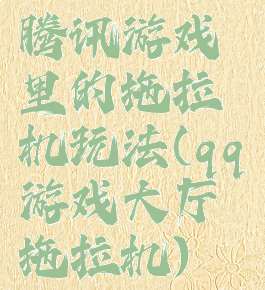 腾讯游戏
里的拖拉
机玩法(qq
游戏大厅
拖拉机)